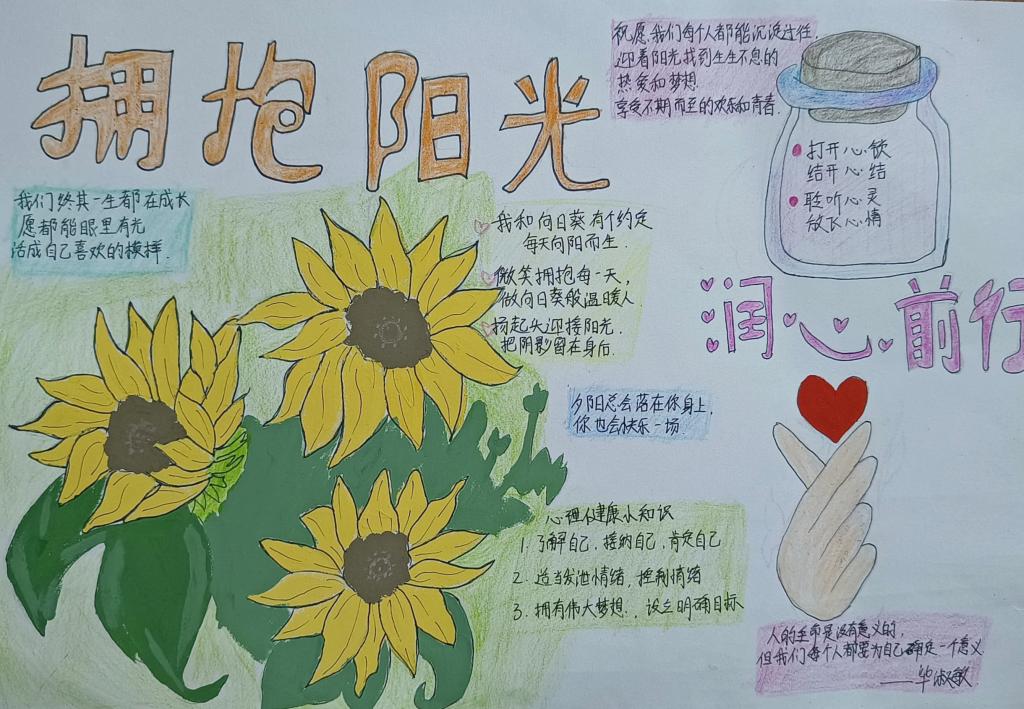 拥抱阳光
祝愿我们每个人都能沉淀过往,
迎着阳光找到生生不息的
热爱和梦想
享受不期而至的欢乐和青春.
打开心锁
结开心结
聆听心灵
放飞心情
我们终其一生都在成长
愿都能眼里有光
活成自己喜欢的模样.
我和向日葵有个约定
每天向阳而生.
微笑拥抱每一天,
做向日葵般温暖人
扬起头迎接阳光.
把阴影留在身后.
润心前行
夕阳总会落在你身上,
你也会快乐一场.
心理健康小知识
1. 了解自己,接纳自己,肯定自己
2. 适当发泄情绪,控制情绪
3. 拥有伟大梦想,设立明确目标
人的生命是没有意义的,
但我们每个人都要为自己确定一个意义
——毕淑敏